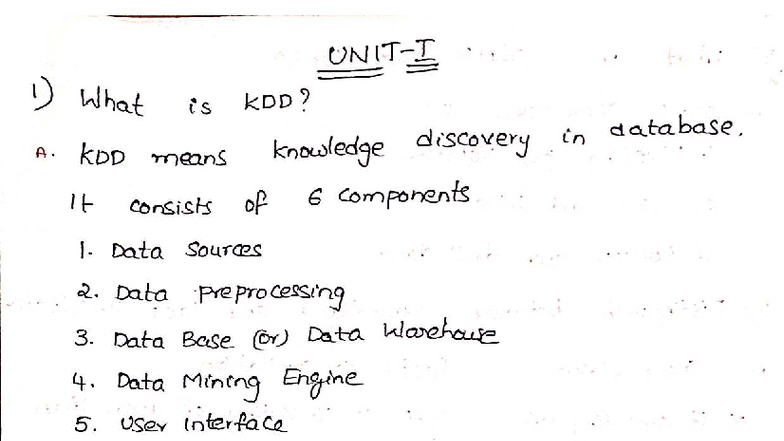 UNIT-I
1) What is KDD?
A. KDD means knowledge discovery in database.
It consists of 6 components
1. Data Sources
2. Data preprocessing
3. Data Base (or) Data Warehouse
4. Data Mining Engine
5. User interface